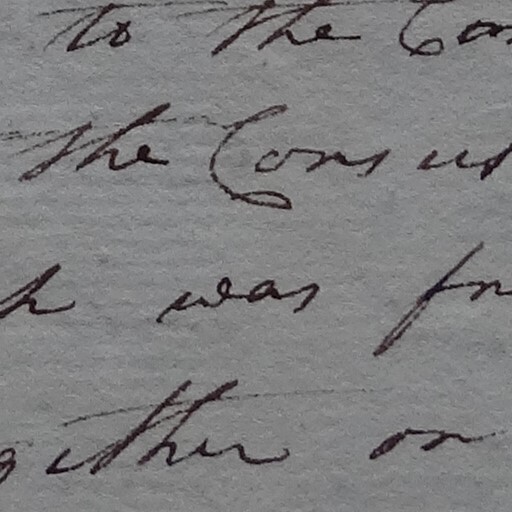 to the Con
the Consu
h was fr
gether on